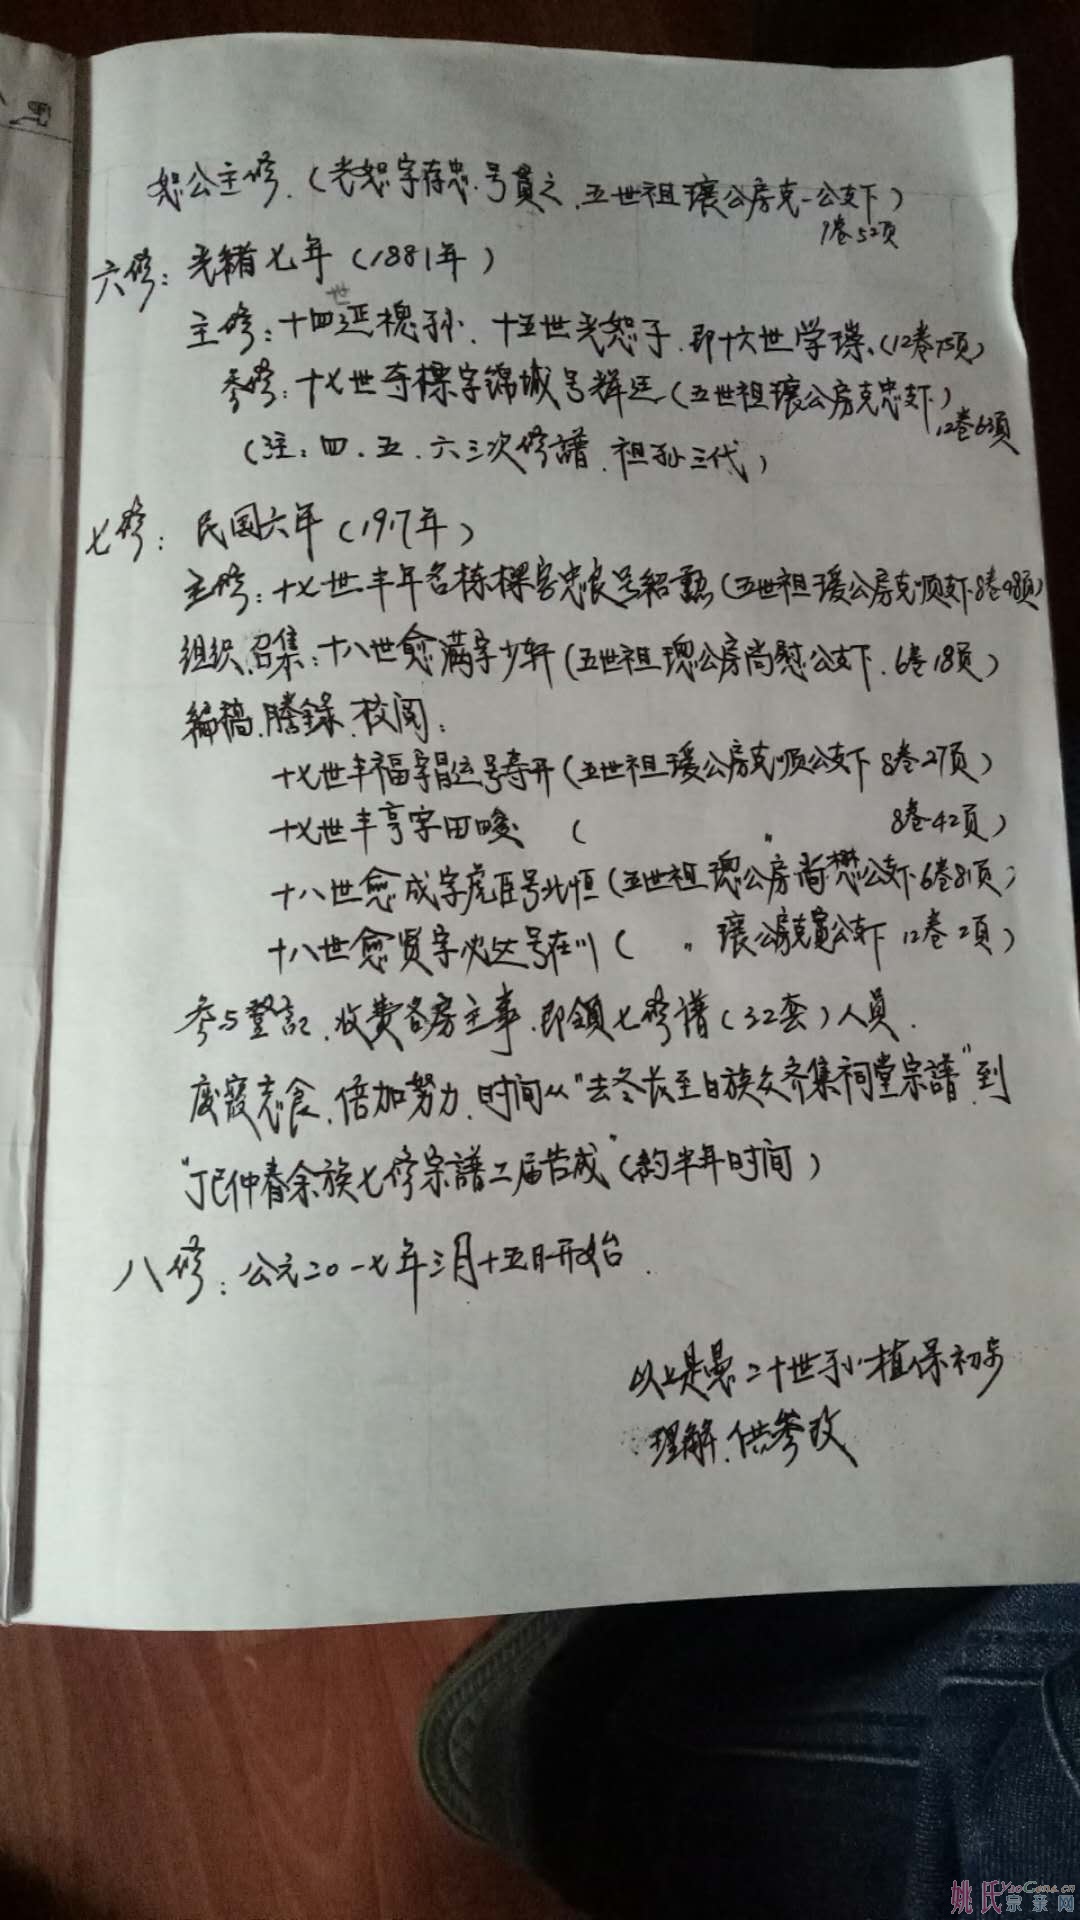 恕公主修.(光恕字存忠.号贯之.五世祖瓖公房克一公支下)
1卷52页
六修:光緒七年(1881年)
世
主修:十四延槐孙.十五世光恕子.即十六世学璨.(12卷75页)
参修:十七世奇樑字锦城号辉廷(五世祖瓖公房克忠支下)
12卷63页
(注:四.五.六三次修譜.祖孙三代)
七修:民国六年(1917年)
主修:十七世丰年名栋樑字忠良号紹勳(五世祖瑗公房克顺支下8卷98页)
组织.召集:十八世愈满字少轩(五世祖璁公房尚慰公支下.6卷18页)
编稿.腾録.校阅:
十七世丰福字昌运号寿开(五世祖瑗公房克顺公支下 8卷27页)
十七世丰亨字田畯 ( 〃 8卷42页)
十八世愈成字虎臣号北恒(五世祖璁公房尚懋公支下6卷81页)
十八世愈贤字必达号在川( 〃 瓖公房克寬公支下 12卷2页)
参与登記.收费各房主事.即領七修谱(32套)人員.
废寝忘食.倍加努力.时间从"去冬长至日族众齐集祠堂宗譜"到
"丁巳仲春余族七修宗譜二届告成"(約半年时间)
八修:公元二0一七年三月十五日开始.
以上是愚二十世孙植保初步
理解.供参攷
姚氏宗亲网
YaoGens.cn